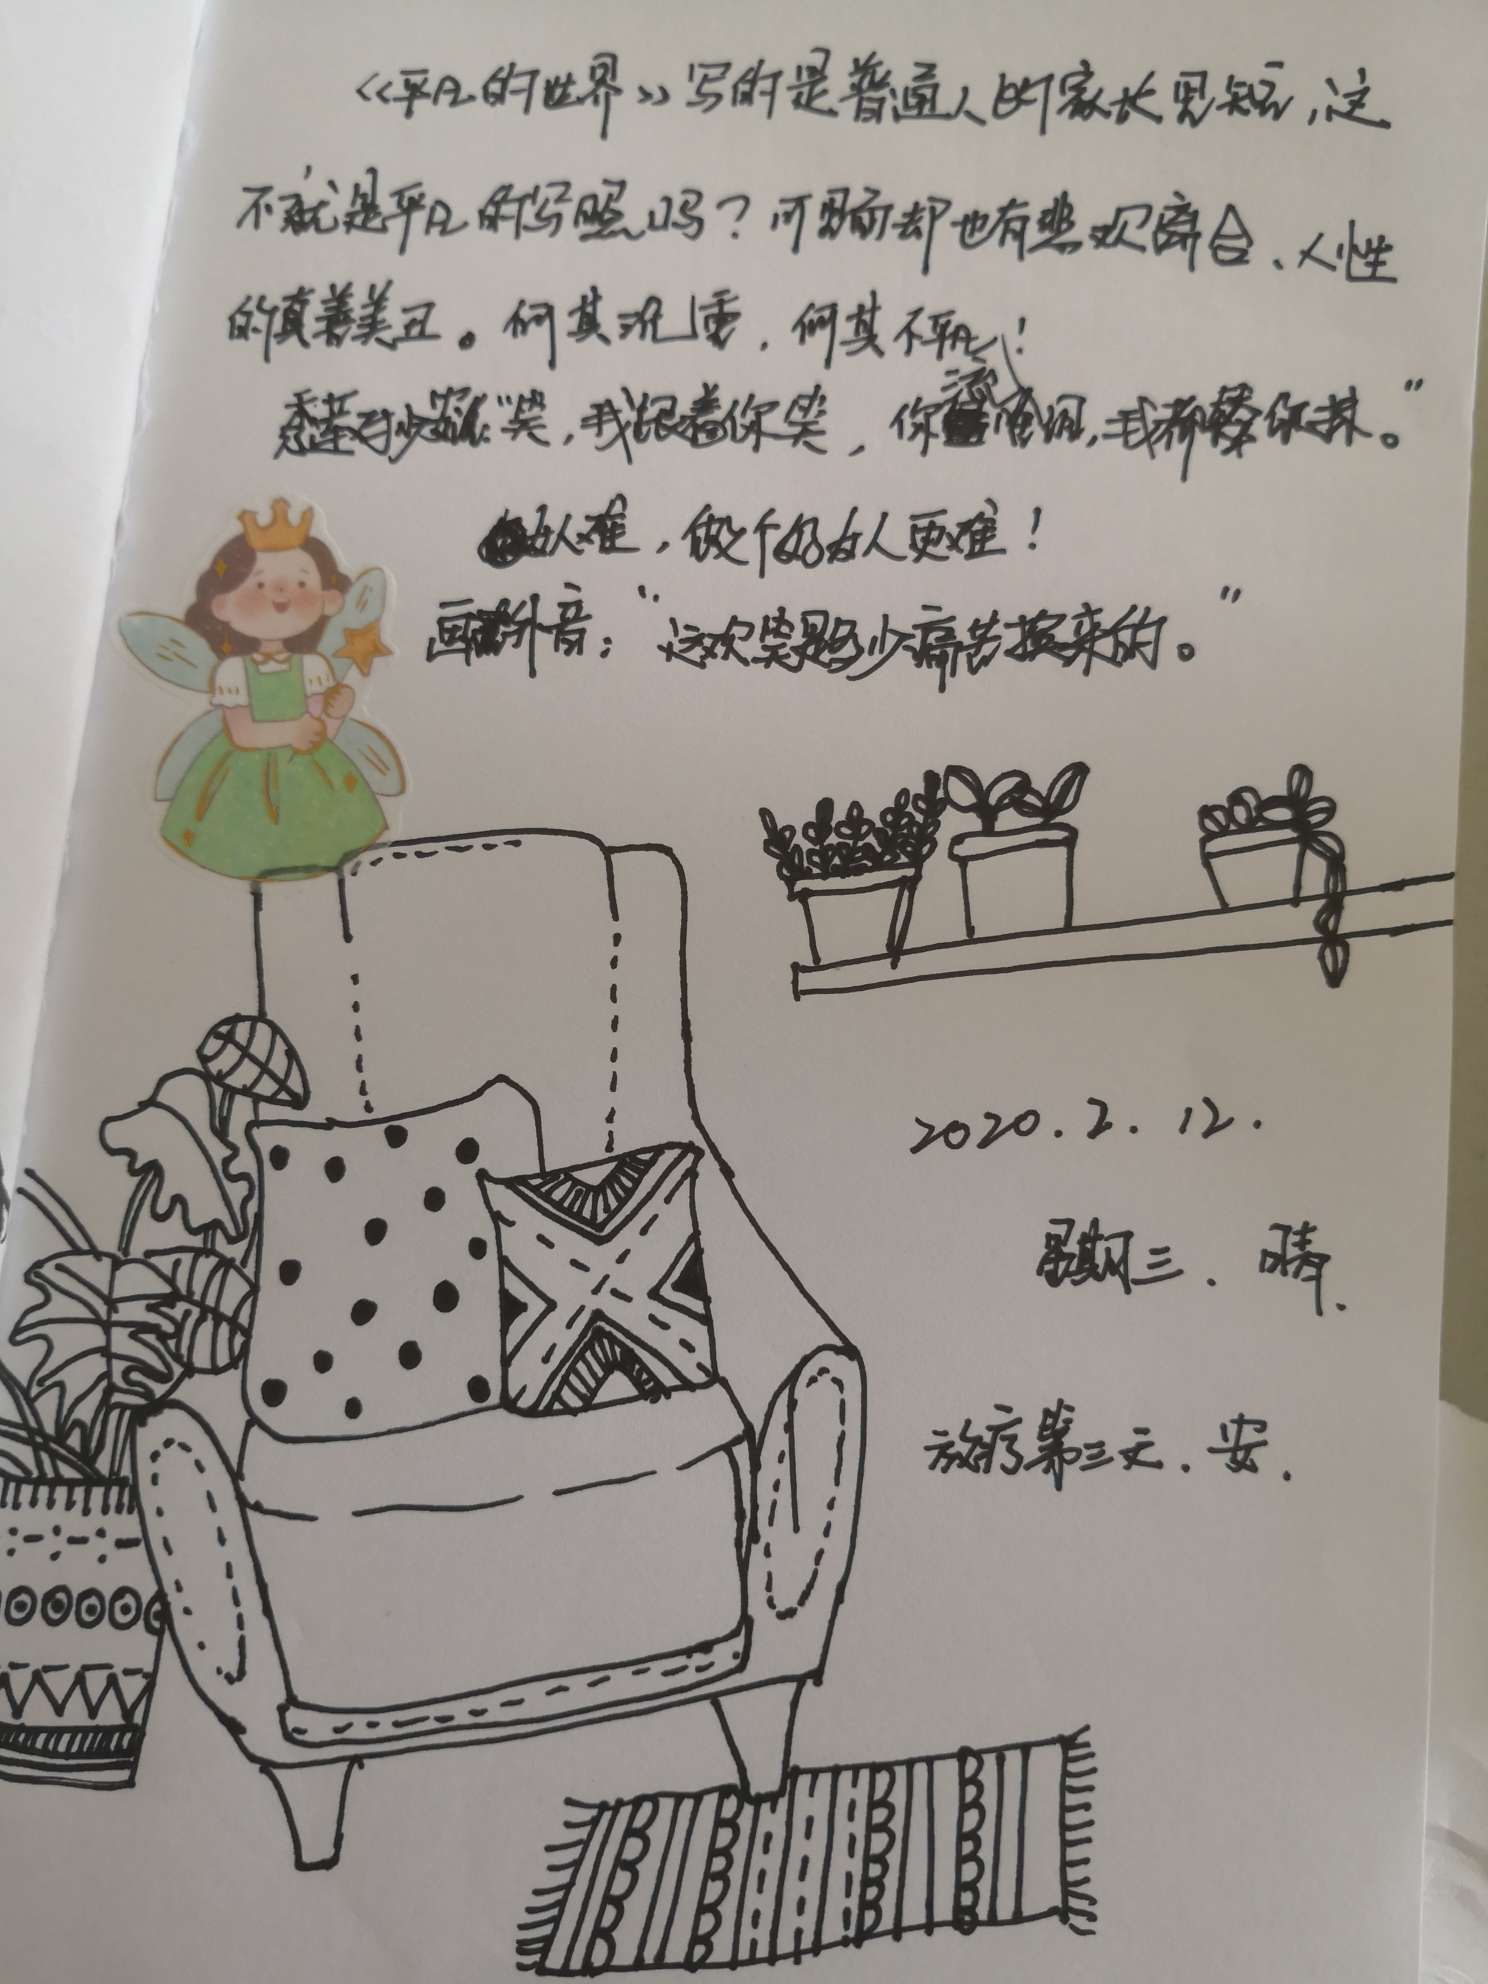 《平凡的世界》写的是普通人的家长里短，这
不就是平凡的写照吗？可里面却也有悲欢离合、人性
的真善美丑。何其沉重，何其不平凡！
秀莲对少安说：“笑，我跟着你笑，你流泪，我都替你抹。”
女人难，做个好女人更难！
画外音：“这欢笑是多少痛苦换来的。”
2020.2.12.
星期三、晴.
放疗第三天、安.